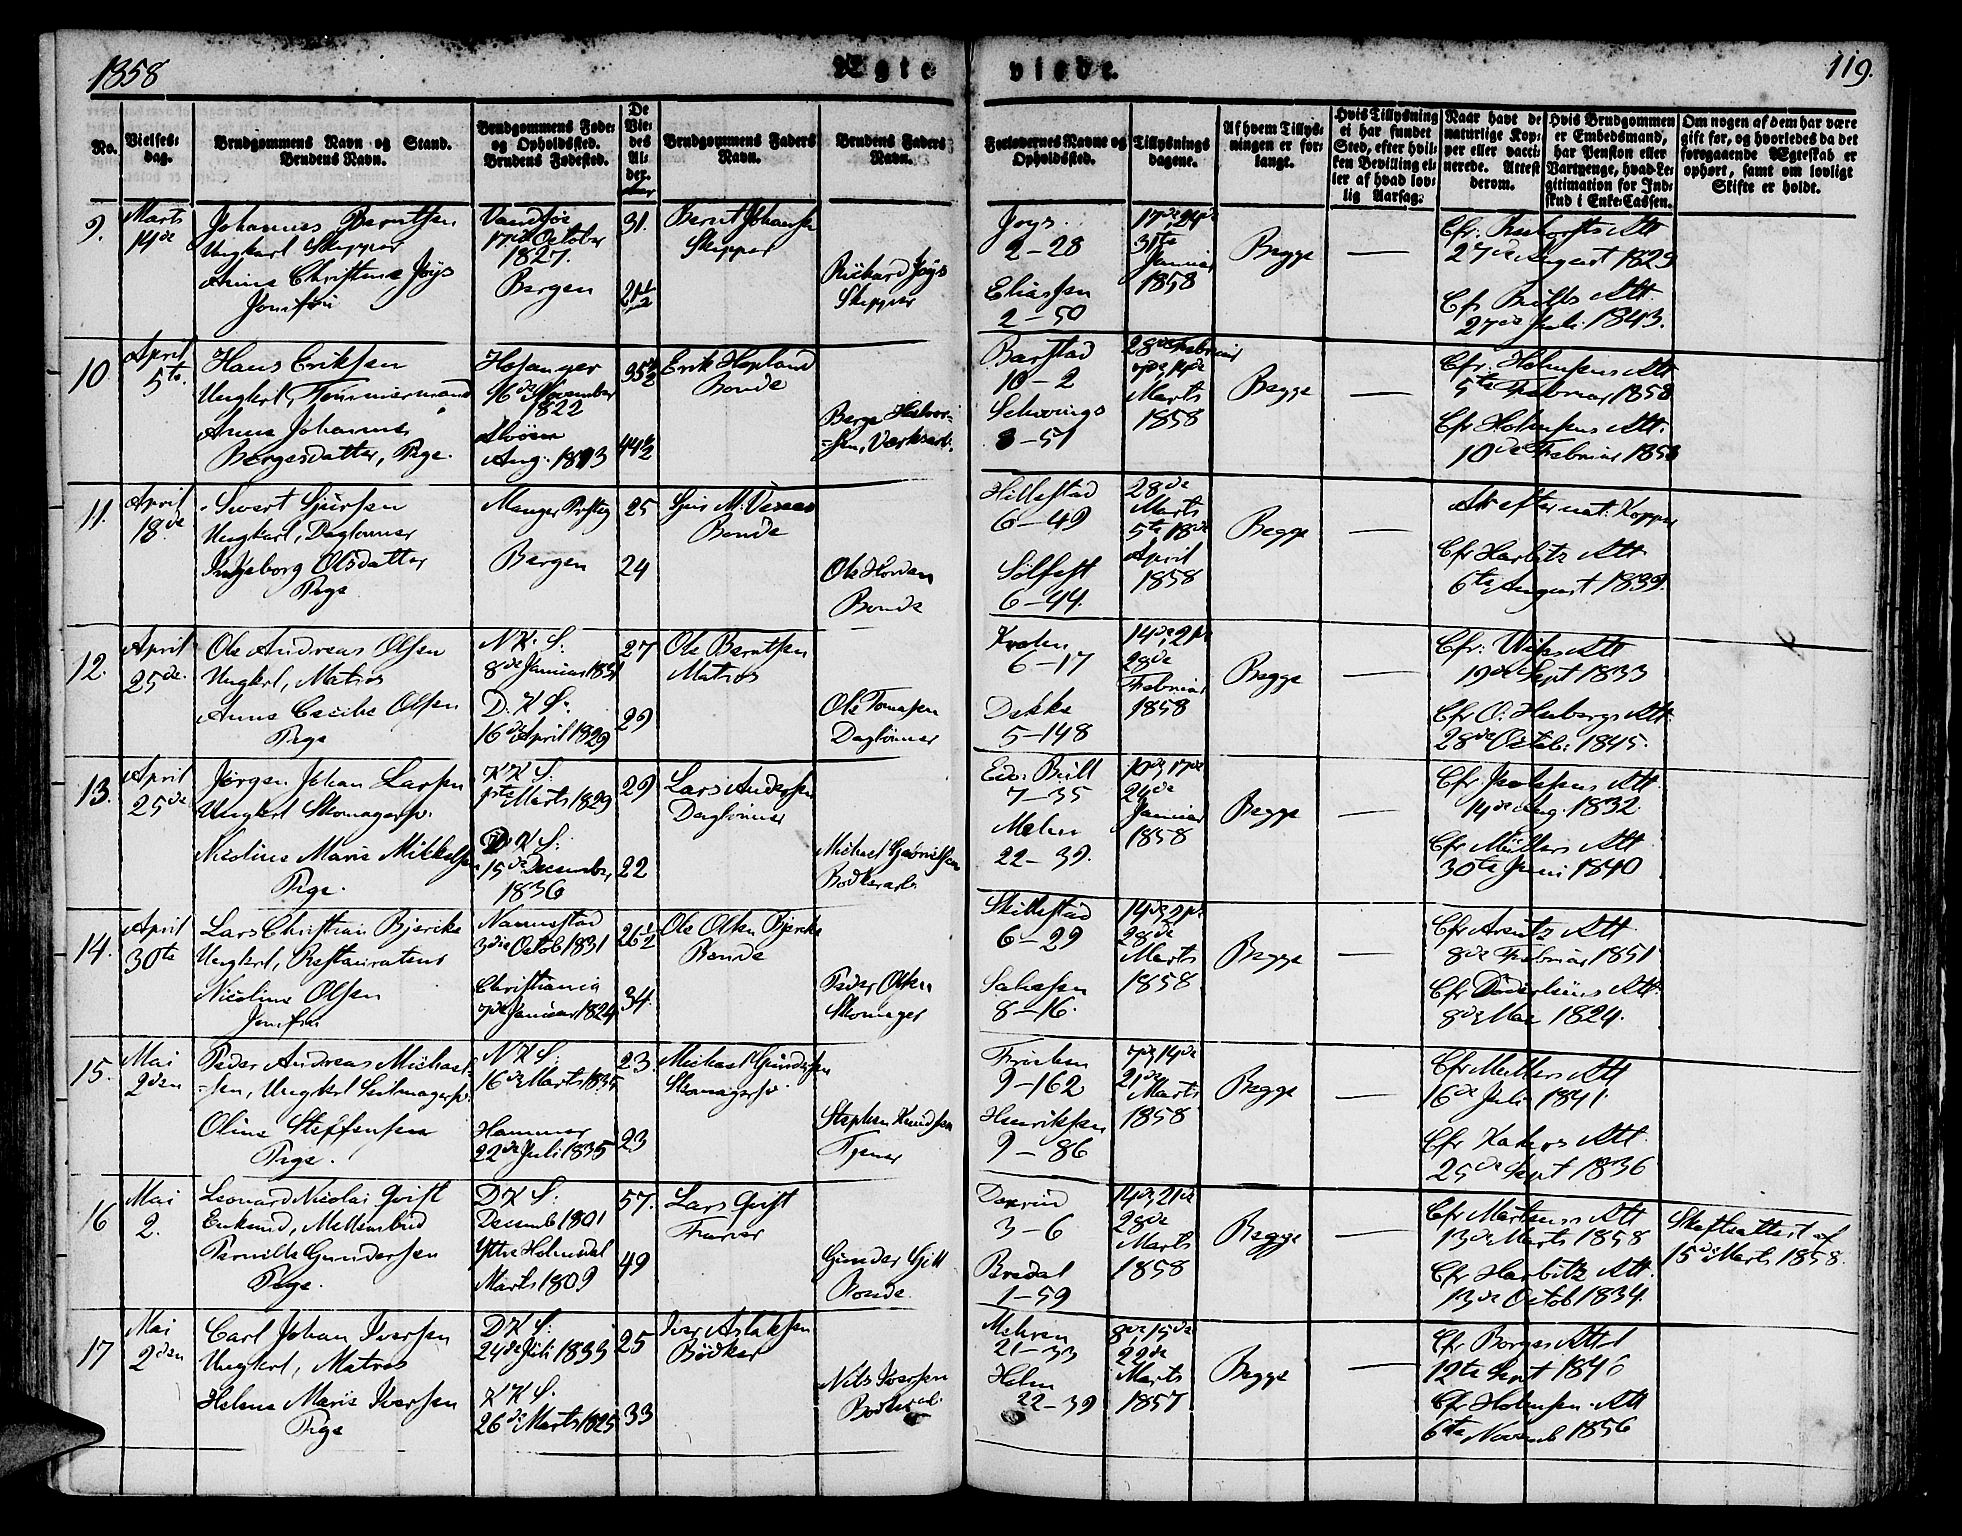 1858 Ægte viede. 119.
No. Vielses-dag. Brudgommens Navn og Stand. Brudens Navn. Brudgommens Føde- og Opholdssted. Brudens Fødested. De Viedes Alder. Brudgommens Faders Navn. Brudens Faders Navn. Forlovernes Navne og Opholdssted. Tillysnings dagene. Af hvem Tillysningen er forlangt. Hvis Tillysning ei har fundet Sted, efter hvilken Bevilling eller af hvad lovlig Aarsag. Naar havt de naturlige Kopper eller vaccinerede. Attest derom. Hvis Brudgommen er Embedsmand, har Pension eller Vartpenge, hvad Legitimation for Indskud i Enke-Cassen. Om nogen af dem har være gift før, og hvorledes da det foregaaende Ægteskab er ophørt, samt om lovligt Skifte er holdt.
9. Marts 14de
Johannes Berntsen
Ungkarl Skipper
Anna Christine Jøys
Jomfru
17de October
1827.
Bergen
31.
21 1/2
Bernt Johansen
Skipper
Richard Jøys
Skipper
Jøys
2-28
Eliassen
2-50
17de, 24de
31te
Januar
1858
Begge —
27de August 1829
Cfr Bulls Att.
27de Juli 1843.
10 April 5te
Hans Eriksen
Ungkrl, Tømmermand
Anna Johanna
Bergesdatter, Pige.
Hosanger
16de November
1822
Alvøen
Aug. 1813
35 1/2
44 1/2
Erik Hopland
Bonde
Berge Halvor-
-sen, Værksarb.
Barstad
10-2
Schwings
8-51
28de Februar
7de, 14de
Marts
1858
Begge —
Cfr. Holmsens Att
5te Februar 1858
Cfr Holmsens Att.
10de Februar 1858
11. April 18de
Sivert Sjursen
Ungkarl, Dagleiner
Ingeborg Olsdatter
Pige
Manger Prstg
Bergen
25
24
Bonde
Ole Horden
Bonde
Hillestad
6-49
Sölfest
6-44.
28de
Marts
5te 18de
April
1858
Begge —
Ar efter nat: Kopper
Cfr Harbitz Att
6te August 1839.
12. April 25de.
Ole Andreas Olsen
Ungkrl, Matros
Anne Cecilie Olsen
Pige
N. K: S:
8de Januar 1831
D. K S:
16de April 1829
27
29
Ole Berntsen
Matros
Ole Tomasen
Dagleiner
6-17
Dekke
5-148
14de, 21de
28de
Februar
1858
Begge —
19de Sept 1833
Cfr O: Heibergs Att.
28de Octob: 1845.
13. April 25de
Jørgen Johan Larsen
Ungkrl Skomagersv.
Nicoline Marie Mikkelsen
Pige.
K K S:
1ste Marts 1829
D. K S:
15de December,
1836
29
22
Lars Andersen
Dagleiner
Michael Gabrielsen
Bødkerarb
Edv. Bull
7-35
Mehn
22-39.
10de, 17de
24de
Januar
1858
Begge —
14de Aug. 1832.
Cfr Müllers Att
30te Juni 1840
14. April 30te
Lars Christian Bjerike
Ungkrl, Restaurateur
Nicoline Olsen
Jomfru
Nannestad
3die Octob 1831
Christiania
7de Januar 1824
26 1/2
34.
Ole Olsen Bjerike
Bonde
Peder Olsen
Skomager
Skillestad
6-29
8-16.
14de, 21de
28de
Marts
1858
Begge —
Cfr Arentz Att.
8de Februar 1851
Cfr Döderleins Att.
8de Mai 1824.
15. Mai 2den
Peder Andreas Michael-
-sen, Ungkrl Seilmagersv.
Oline Steffensen
Pige.
N K S:
16de Marts 1835
Hammer
22de Juli 1835
23.
23
Michael Gundersen
Skomagersv
Stephen Knudsen
Tjener
9-162
Henriksen
9-86
7de, 14de
21de
Marts
1858
Begge —
Cfr Müllers Att
16de Juli 1841.
25de Sept 1836
16 Mai 2.
Leonard Nicolai Qvist
Enkmd, Mellembud
Pernille Gundersen
Pige.
D K S:
Decemb 1801
Yttre Holmedal
Marts 1809
57.
49
Lars Qvist
Farver
Bonde.
3-6
Bredal
1-59
14de, 21de
28de
Marts
1858
Begge —
Cfr Martens Att
13de Marts 1858
Cfr Harbitz Att.
13de Octob 1834.
Skifteattest af
15de Marts 1858.
17 Mai 2den
Carl Johan Iversen
Ungkrl, Matros
Helene Marie Iversen
Pige
D K S:
24de Juli 1833
K K S.
26de Marts 1825
25
33
Iver Aslaksen
Bødker
Nils Iversen
Bødkerarb.
Mehren
21-33
Helm
22-39
8de, 15de
22de
Marts
1857
Begge —
12te Sept 1846
Cfr Holmsen Att
6te Novemb 1856